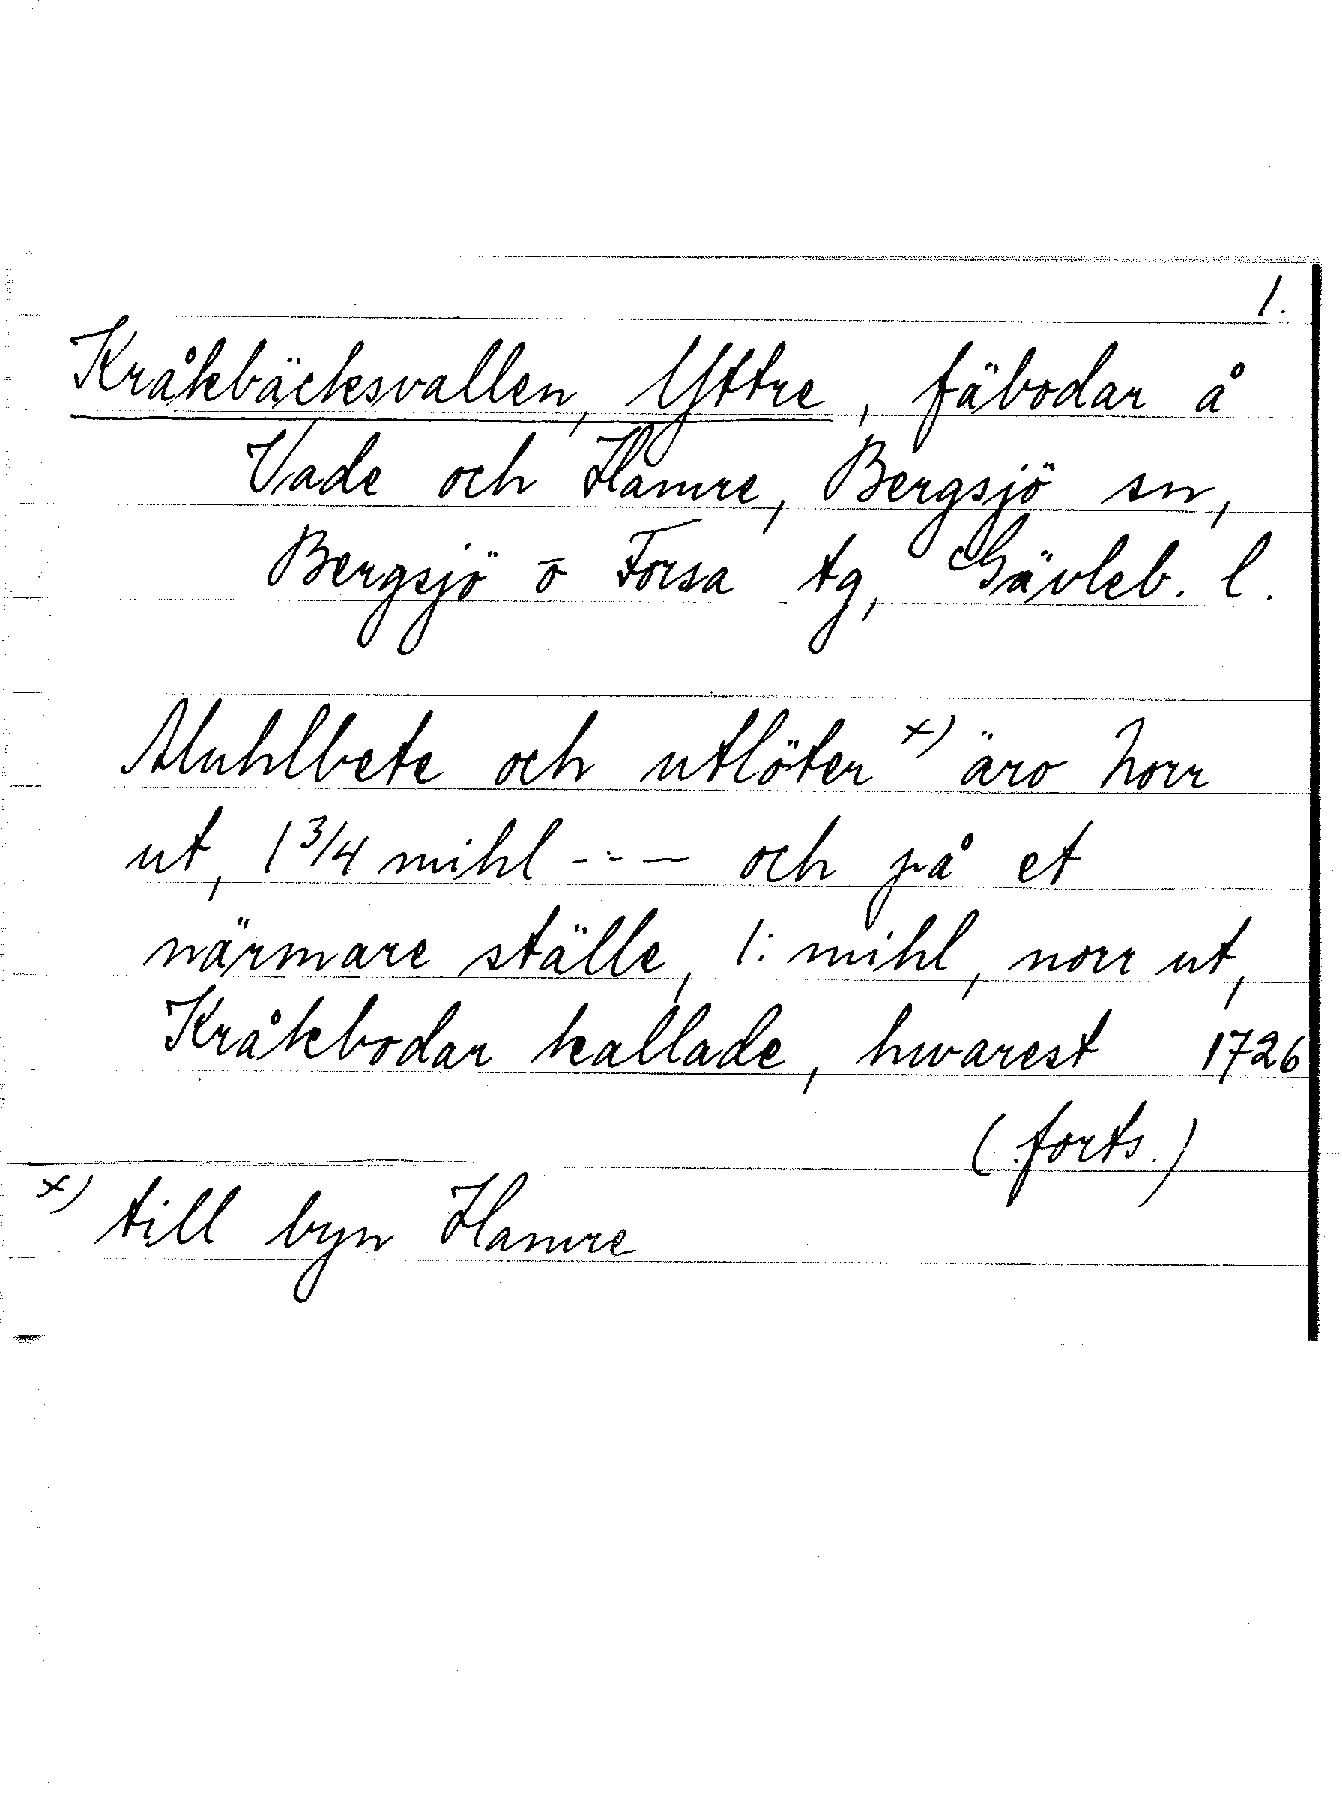 1.
Kråkbäcksvallen, Yttre, fäbodar å
Vade och Hamre, Bergsjö sn,
Bergsjö o Forsa tg, Gävleb. l.
Muhlbete och utlöter x) äro Norr
ut, 1 3/4 mihl --- och på et
närmare ställe, 1: mihl, norr ut,
Kråkbodar kallade, hwarest 1726
(forts.)
x) till byn Hamre